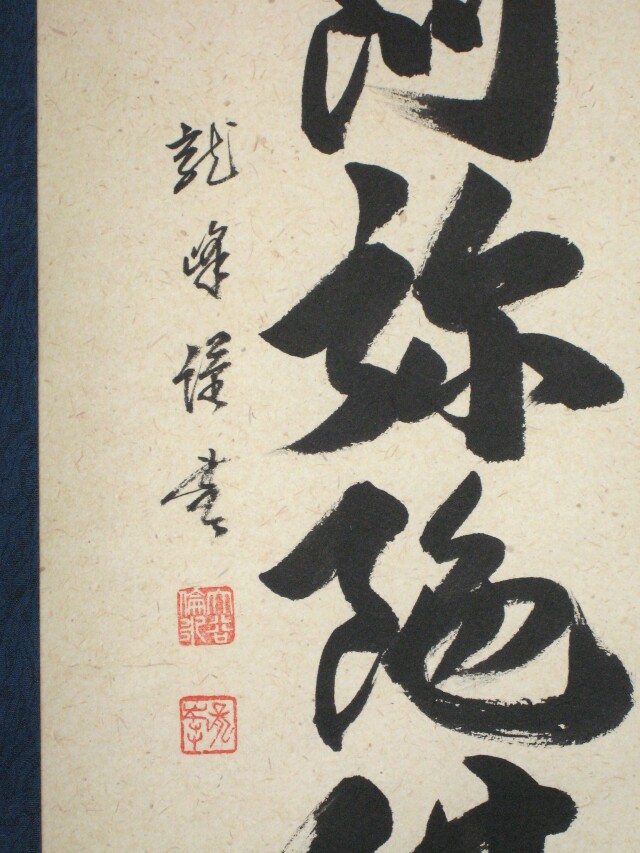 阿弥陀仏
龍峰謹書